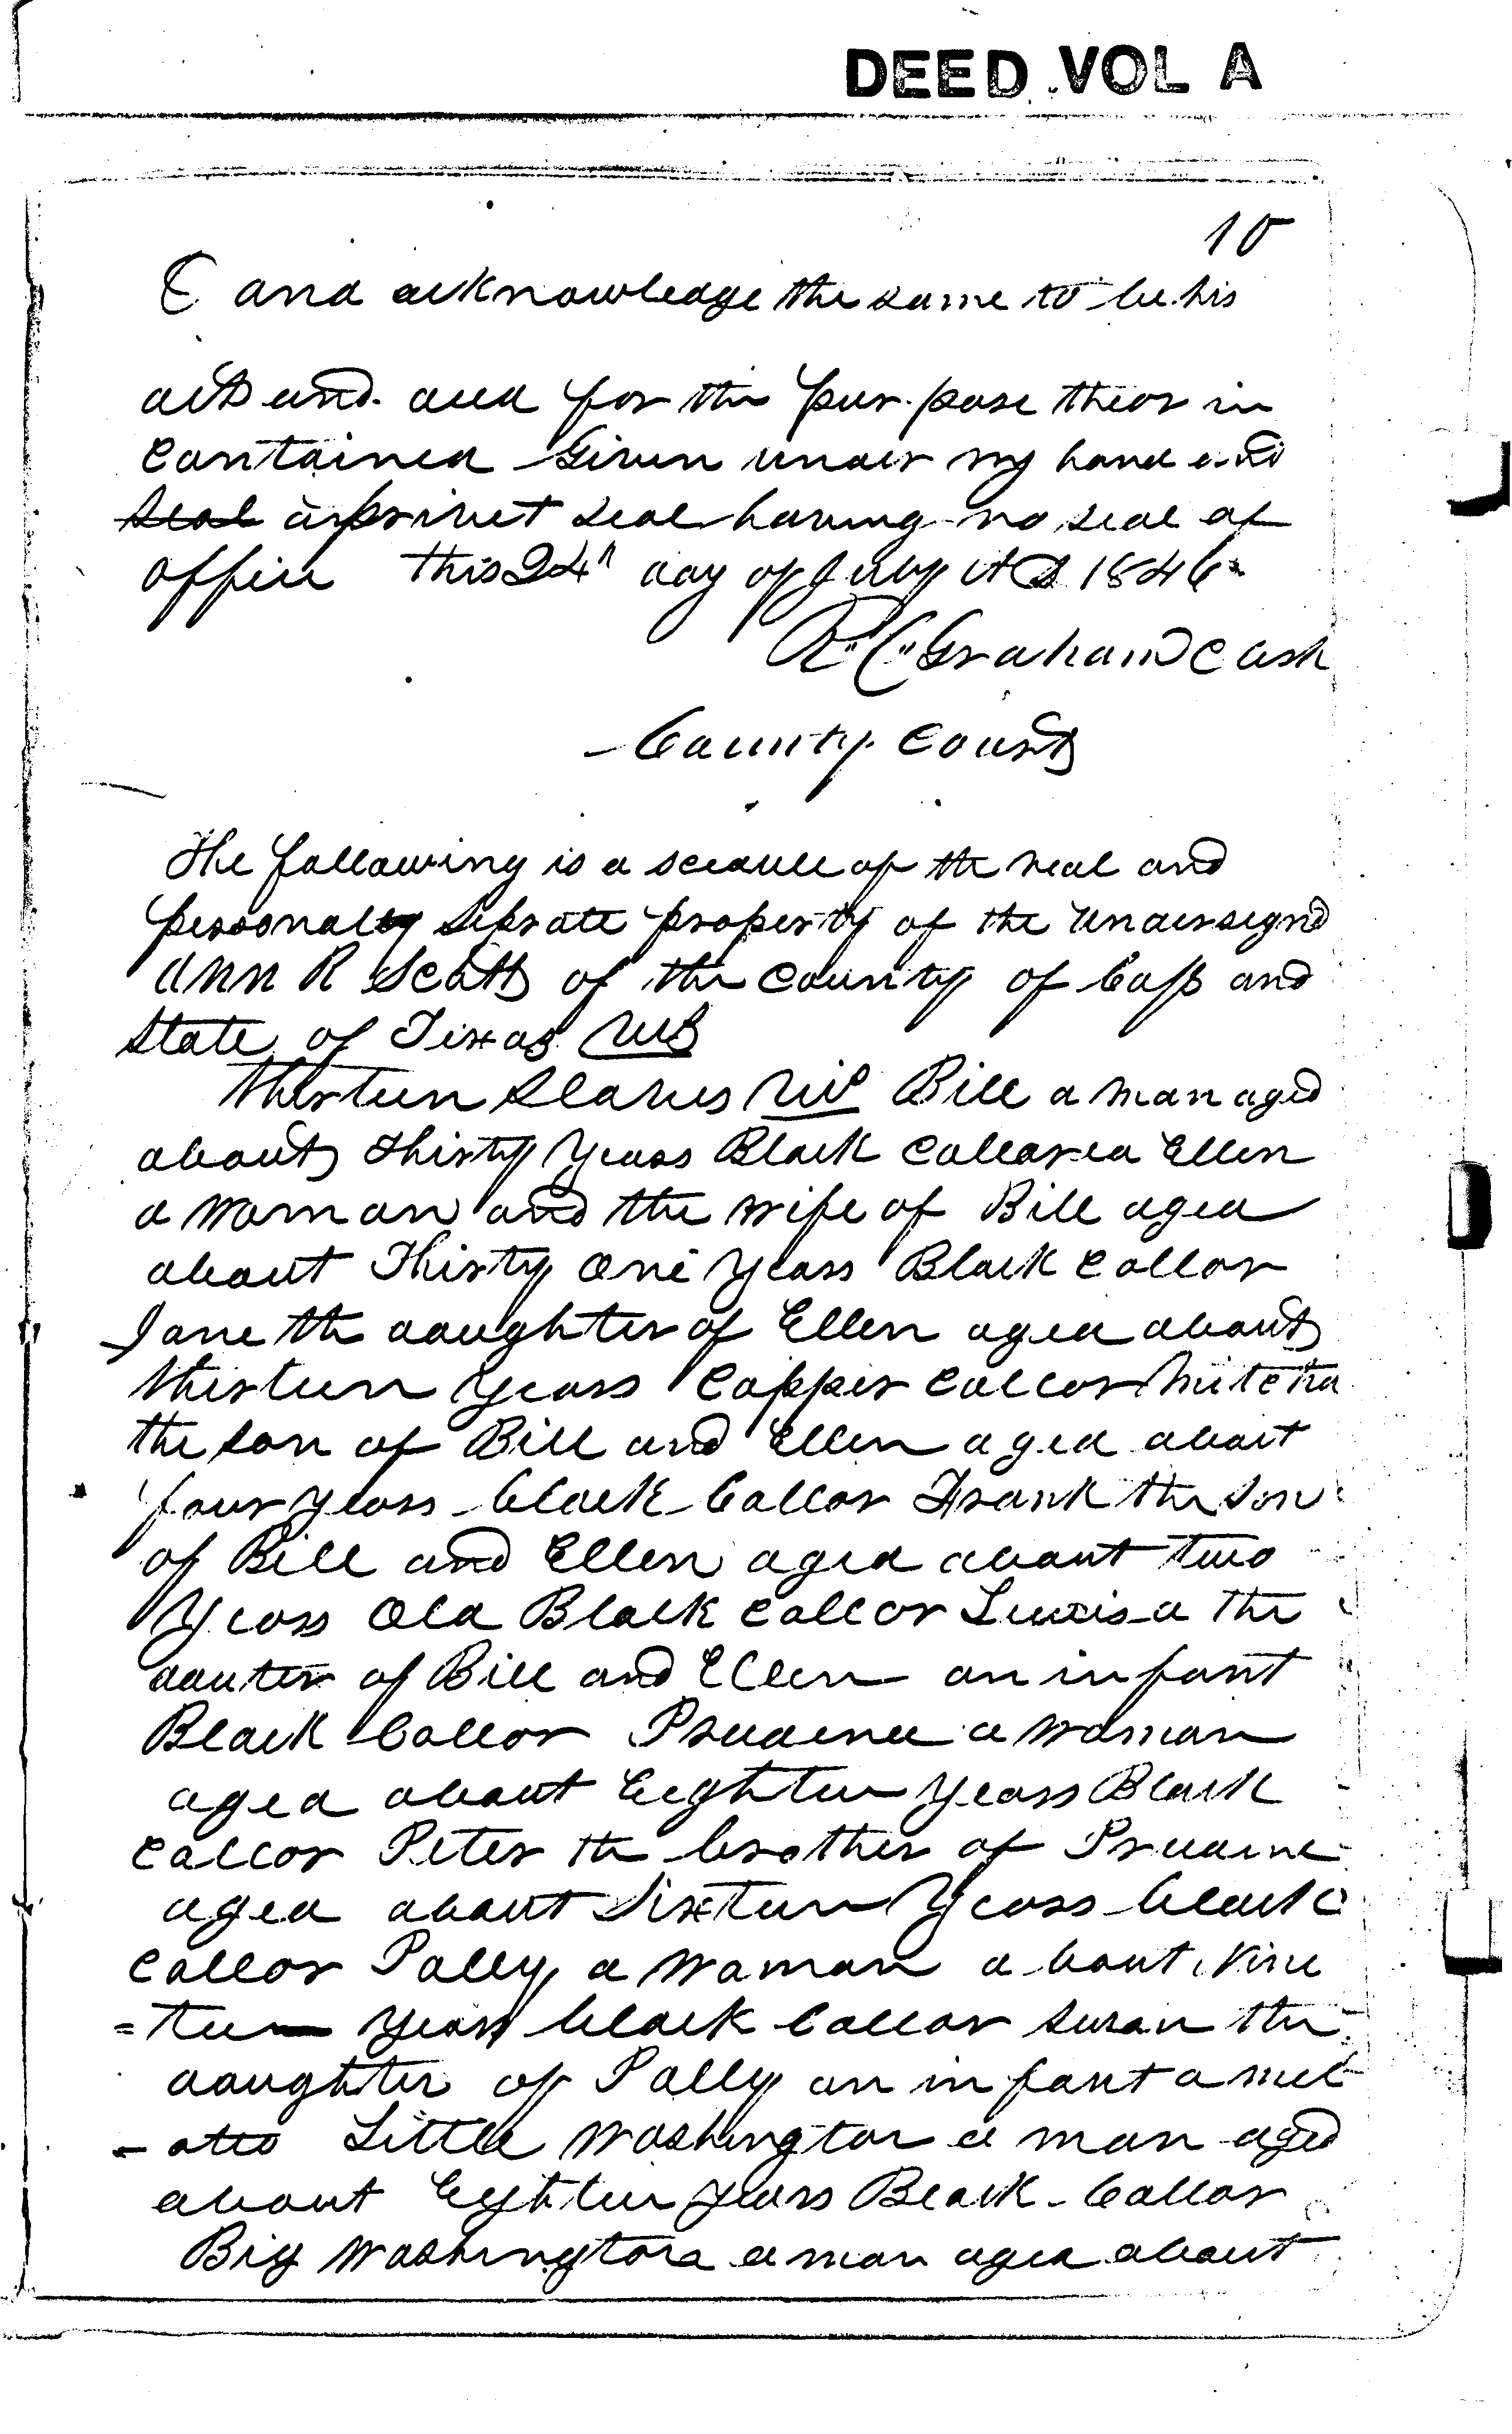 DEED VOL A
10
& and acknowledge the same to be his
acts and deed for the purpose theor in
contained Given under my hand and
seal a privet seal having no seal of
office this 24" day of July AD 1846
R" C" Graham Clk
County Court
The following is a scedule of the real and
personal seprate property of the undersignd
Ann R Scott of the County of Cass and
State of Texas
Therteen Slaves Viz Bill a man aged
about Thirty Years Black collored Ellen
a woman and the wife of Bill aged
about Thirty One Years Black Collor
Jane the daughter of Ellen aged about
therteen Years Copper Collor
the son of Bill and Ellen aged about
four years black Collor Frank the son
of Bill and Ellen aged about two
Years Old Black Collor Louisa the
dauter of Bill and Ellen an infant
Black Collor Prudence a woman
aged about Eighteen Years Black
Collor Peter the brother of Prudence
aged about Sixteen Years black
Collor Polly a woman about Nine
=teen Years black Collor Susan the
daughter of Polly an infant a mul
- atto Little Washington a man aged
about Eighteen Years Black Collor
Big Washington a man aged about